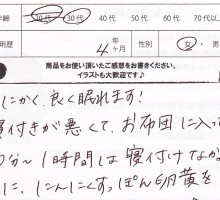 年齢 20代 30代 40代 50代 60代 70代
用歴 4 年 ヶ月 性別 女・男
商品をお使い頂いたご感想をお書きください。
イラストも大歓迎です♪
にかく、良く眠れます!
寝付きが悪くて、お布団に入っ
0分〜1時間は寝付けなか
に、にんにくすっぽん卵黄を